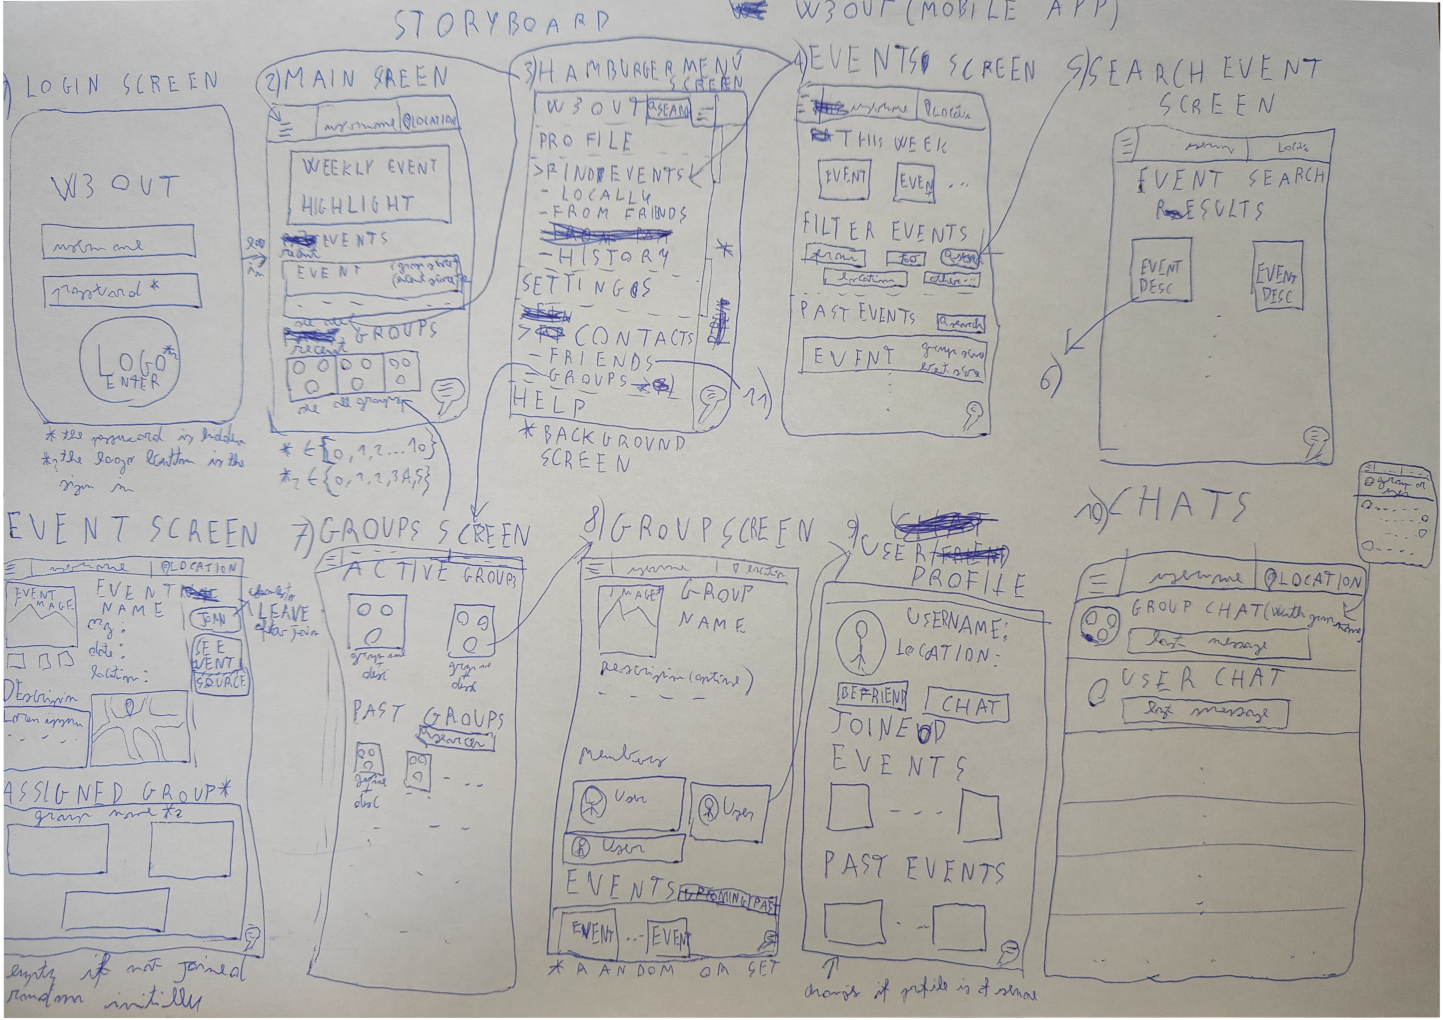 STORYBOARD
W3OUT (MOBILE APP)
1) LOGIN SCREEN
W3 OUT
username
password *
LOGO *2
ENTER
* the password is hidden
*2 the logo button is the
sign in
2) MAIN SREEN
username LOCATION
WEEKLY EVENT
HIGHLIGHT
EVENTS
recent
EVENT
group score
event score
see all
GROUPS
recent
see all groups
* ∈ {0,1,2...10}
*2 ∈ {0,1,2,3,4,5}
3) HAMBURGER MENU
SCREEN
W3OUT SEAR
PROFILE
> FIND EVENTS
- LOCALLY
- FROM FRIENDS
- HISTORY
SETTINGS
> CONTACTS
- FRIENDS
- GROUPS
HELP
*
11)
* BACKGROUND
SCREEN
4) EVENTS SCREEN
username Location
THIS WEEK
EVENT EVEN ...
FILTER EVENTS
from to search
location other...
PAST EVENTS search
EVENT
group score
event score
5) SEARCH EVENT
SCREEN
EVENT SEARCH
RESULTS
EVENT
DESC
EVENT
DESC
6)
EVENT SCREEN
username LOCATION
EVENT
IMAGE
EVENT
NAME
org:
date:
location:
JOIN
LEAVE
after join
SEE
EVENT
SOURCE
Description
Lorem ipsum
ASSIGNED GROUP *
group name *2
empty if not joined
random initially
7) GROUPS SCREEN
ACTIVE GROUPS
group name
desc
group name
desc
PAST GROUPS
search
desc
8) GROUP SCREEN
username location
IMAGE
GROUP
NAME
Description (optional)
members
User User
User
EVENTS UPCOMING PAST
EVENT ... EVENT
* RANDOM OR SET
9) USER
PROFILE
USERNAME:
LOCATION:
BEFRIEND CHAT
JOINED
EVENTS
PAST EVENTS
change if profile is of
10) CHATS
username LOCATION
GROUP CHAT (with group name)
last message
USER CHAT
last message
group or
user